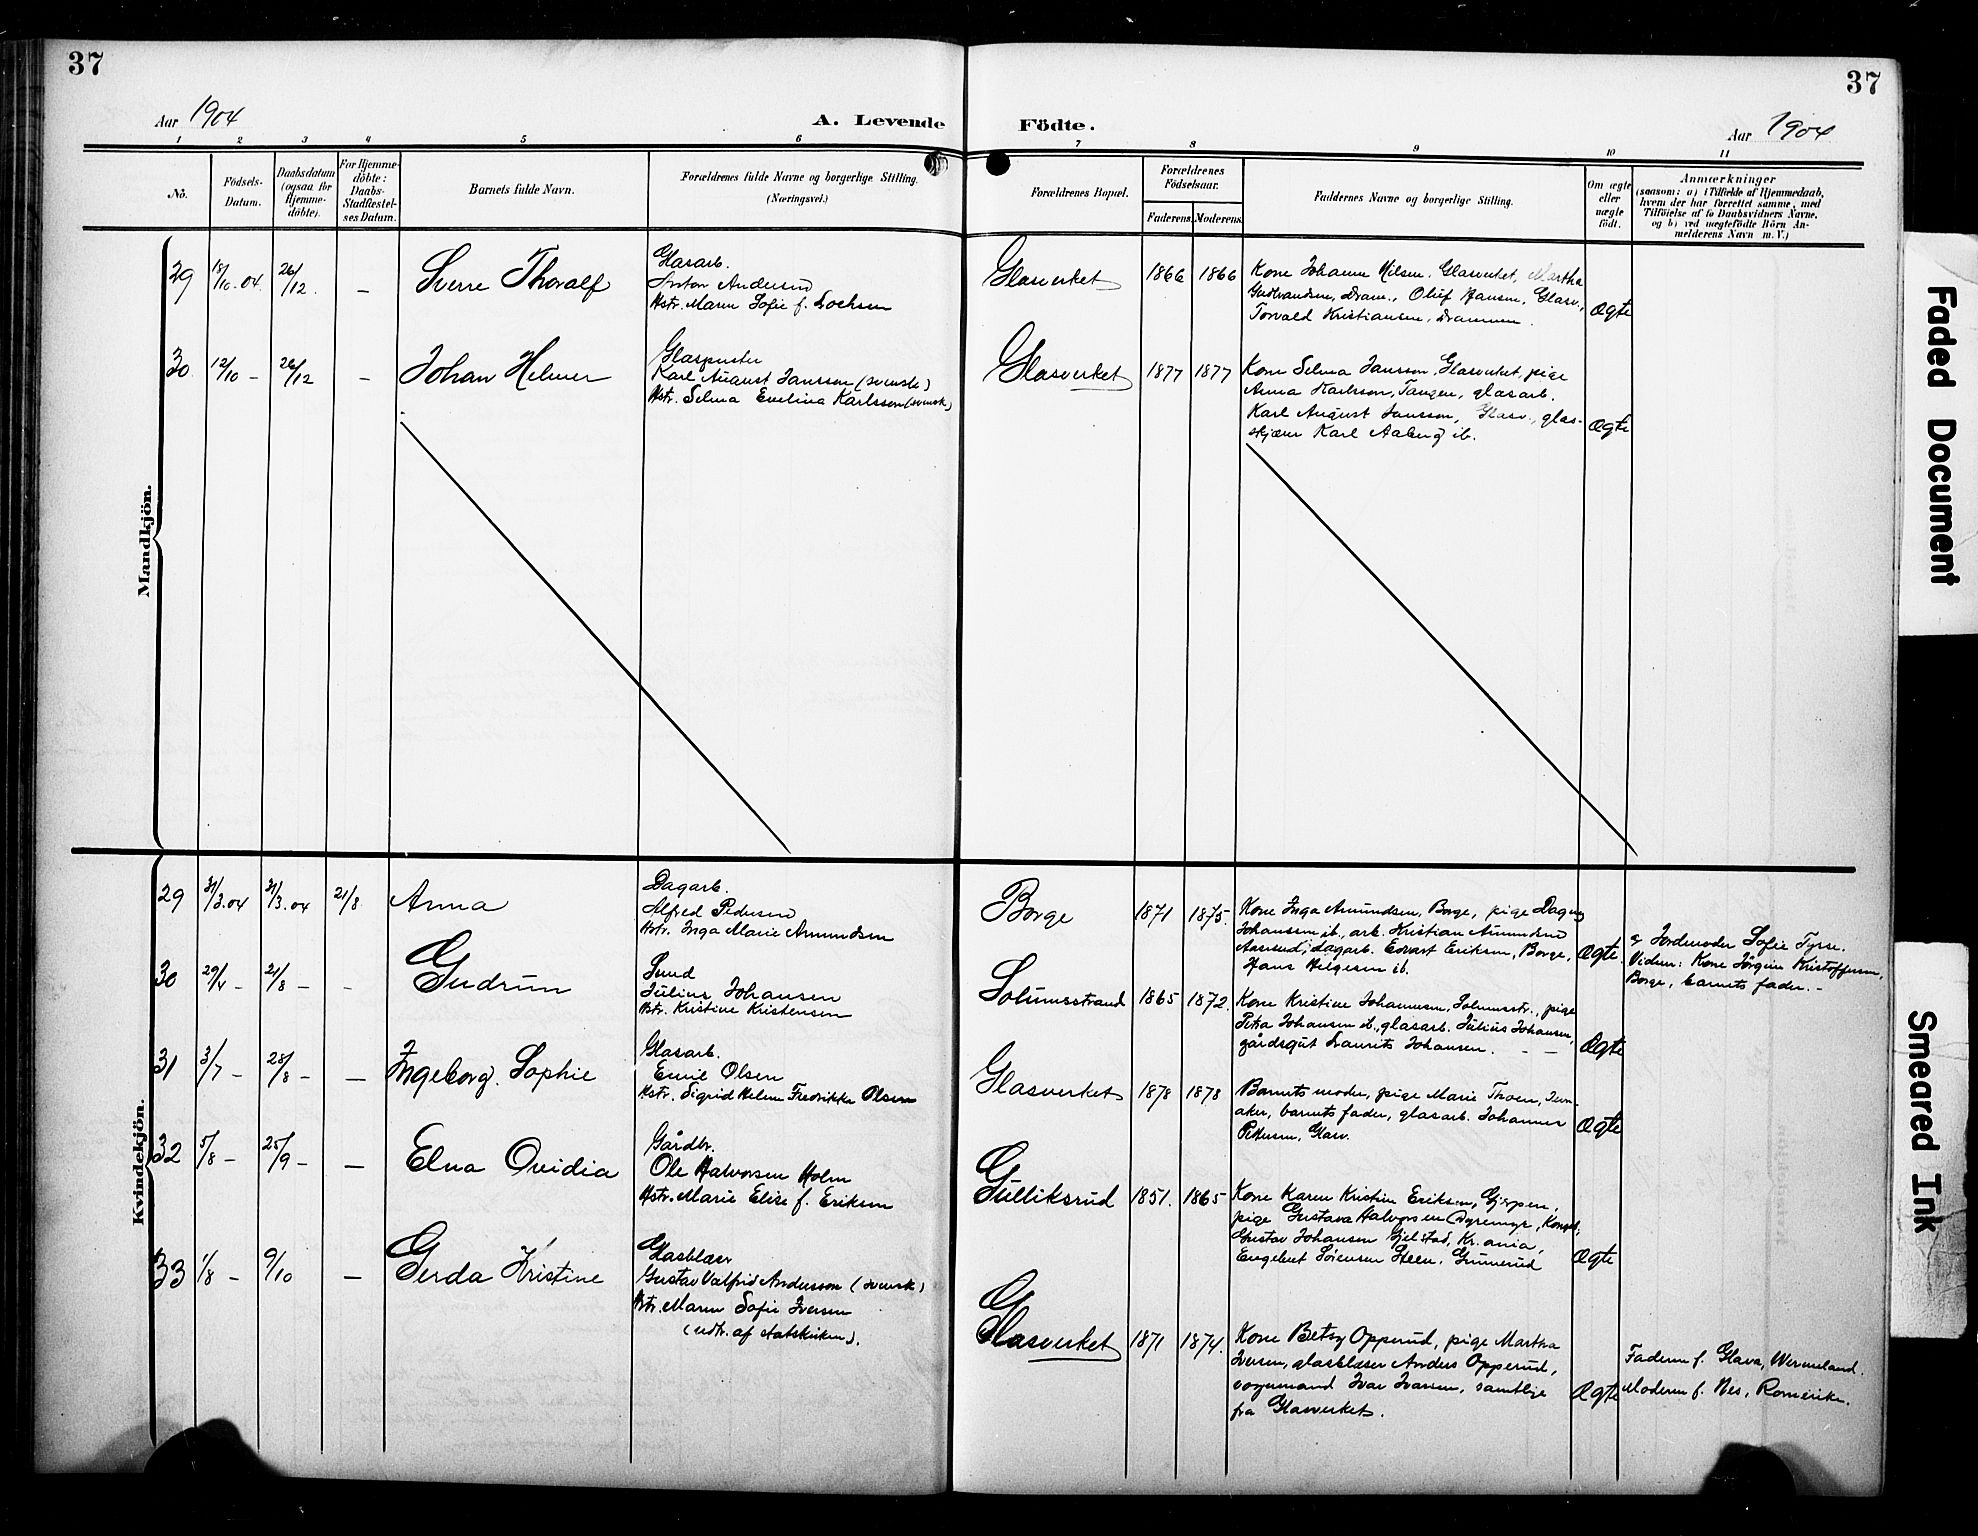 37
37
Aar 1904
A. Levende
Födte.
Aar 1904
1 2 3 4 5 6 7 8 9 10 11
No.
Födsels-
Datum.
Daabsdatum
(ogsaa for
Hjemme-
döbte).
For Hjemme-
döbte:
Daabs-
Stadfæstel-
ses Datum.
Barnets fulde Navn.
Forældrenes fulde Navne og borgerlige Stilling.
(Næringsvei.)
Forældrenes Bopæl.
Forældrenes
Födselsaar.
Faderens. Moderens.
Faddernes Navne og borgerlige Stilling.
Om ægte
eller
uægte
födt.
Anmærkninger
(saasom: a) i Tilfælde af Hjemmedaab,
hvem der har forrettet samme, med
Tilföielse af to Daabsvidners Navne,
og b) ved uægtefödte Börn An-
melderens Navn m. V.)
Mandkjön.
29 18/10.04. 26/12. – Sverre Thoralf
Glasarb.
Anton Andersen
Hstr. Maren Sofie f. Lochsen
Glasverket 1866 1866
Kone Johanne Nilsen, Glasverket, Martha
Gudbrandsen, Dram., Oluf Hansen, Glasv.,
Torvald Kristiansen, Drammen.
Ægte
30. 12/10 – 26/12 – Johan Helmer
Glaspuster
Karl August Jansson (svensk)
Hstr. Selma Evelina Karlsson (svensk)
Glasverket 1877 1877
Kone Selma Jansson, Glasverket, pige
Anna Karlsson, Tangen, glasarb.
Karl August Jansson, Glasv., glas-
skjærer Karl Aaberg ib.
Ægte
Kvindekjön.
29 31/3.04 31/3.04 21/8. Anna
Dagarb.
Alfred Pedersen
Hstr. Inga Marie Amundsen
Borge 1871 1875.
Kone Inga Amundsen, Borge, pige Dagny
Johansen ib., arb. Kristian Amundsen
Aaserud, dagarb. Edvart Eriksen, Borge,
Hans Helgesen ib.
Ægte.
Jordmoder Sofie Tysse.
Vidner: Kone Jörgine Kristoffersen,
Borge, barnets fader. –
30 29/4 – 21/8 – – Gudrun
Smed
Julius Johansen
Hstr. Kristine Kristensen
Solumsstrand 1865 1872.
Kone Kristine Johannesen, Solumsstr., pige
Petra Johansen ib., glasarb. Julius Johansen,
gårdsgut Laurits Johansen. – –
Ægte
31 3/7 – 28/8 – – Ingeborg Sophie
Glasarb.
Emil Olsen
Hstr. Sigrid Helene Fredrikke Olsen
Glasverket 1878 1878
Barnets moder, pige Marie Thoen, Jevn-
aker, barnets fader, glasarb. Johannes
Pettersen, Glasv.
Ægte
32 5/8 – 25/9 – – Elna Ovidia
Gårdbr.
Ole Halvorsen Holm
Hstr. Marie Elise f. Eriksen
Gulliksrud 1851. 1865
Kone Karen Kristine Eriksen, Gjerpen,
pige Gustava Halvorsen Dyremyr, Kongsb.,
Gustav Johansen Gjelstad, Kr.ania,
Engebret Sörensen Steen, Gunnerud
Ægte
33 1/8 – 9/10 – Gerda Kristine
Glasblæser
Gustav Valfrid Andersson (svensk)
Hstr. Maren Sofie Iversen
(udtr. af statskirken).
Glasverket 1871 1874.
Kone Betsy Opperud, pige Martha
Iversen, glasblæser Anders Opperud,
vognmand Ivar Iversen, samtlige
fra Glasverket.
Ægte
Faderen f. Glava, Wermeland.
Moderen f. Nes, Romerike.
Faded Document
Smeared Ink